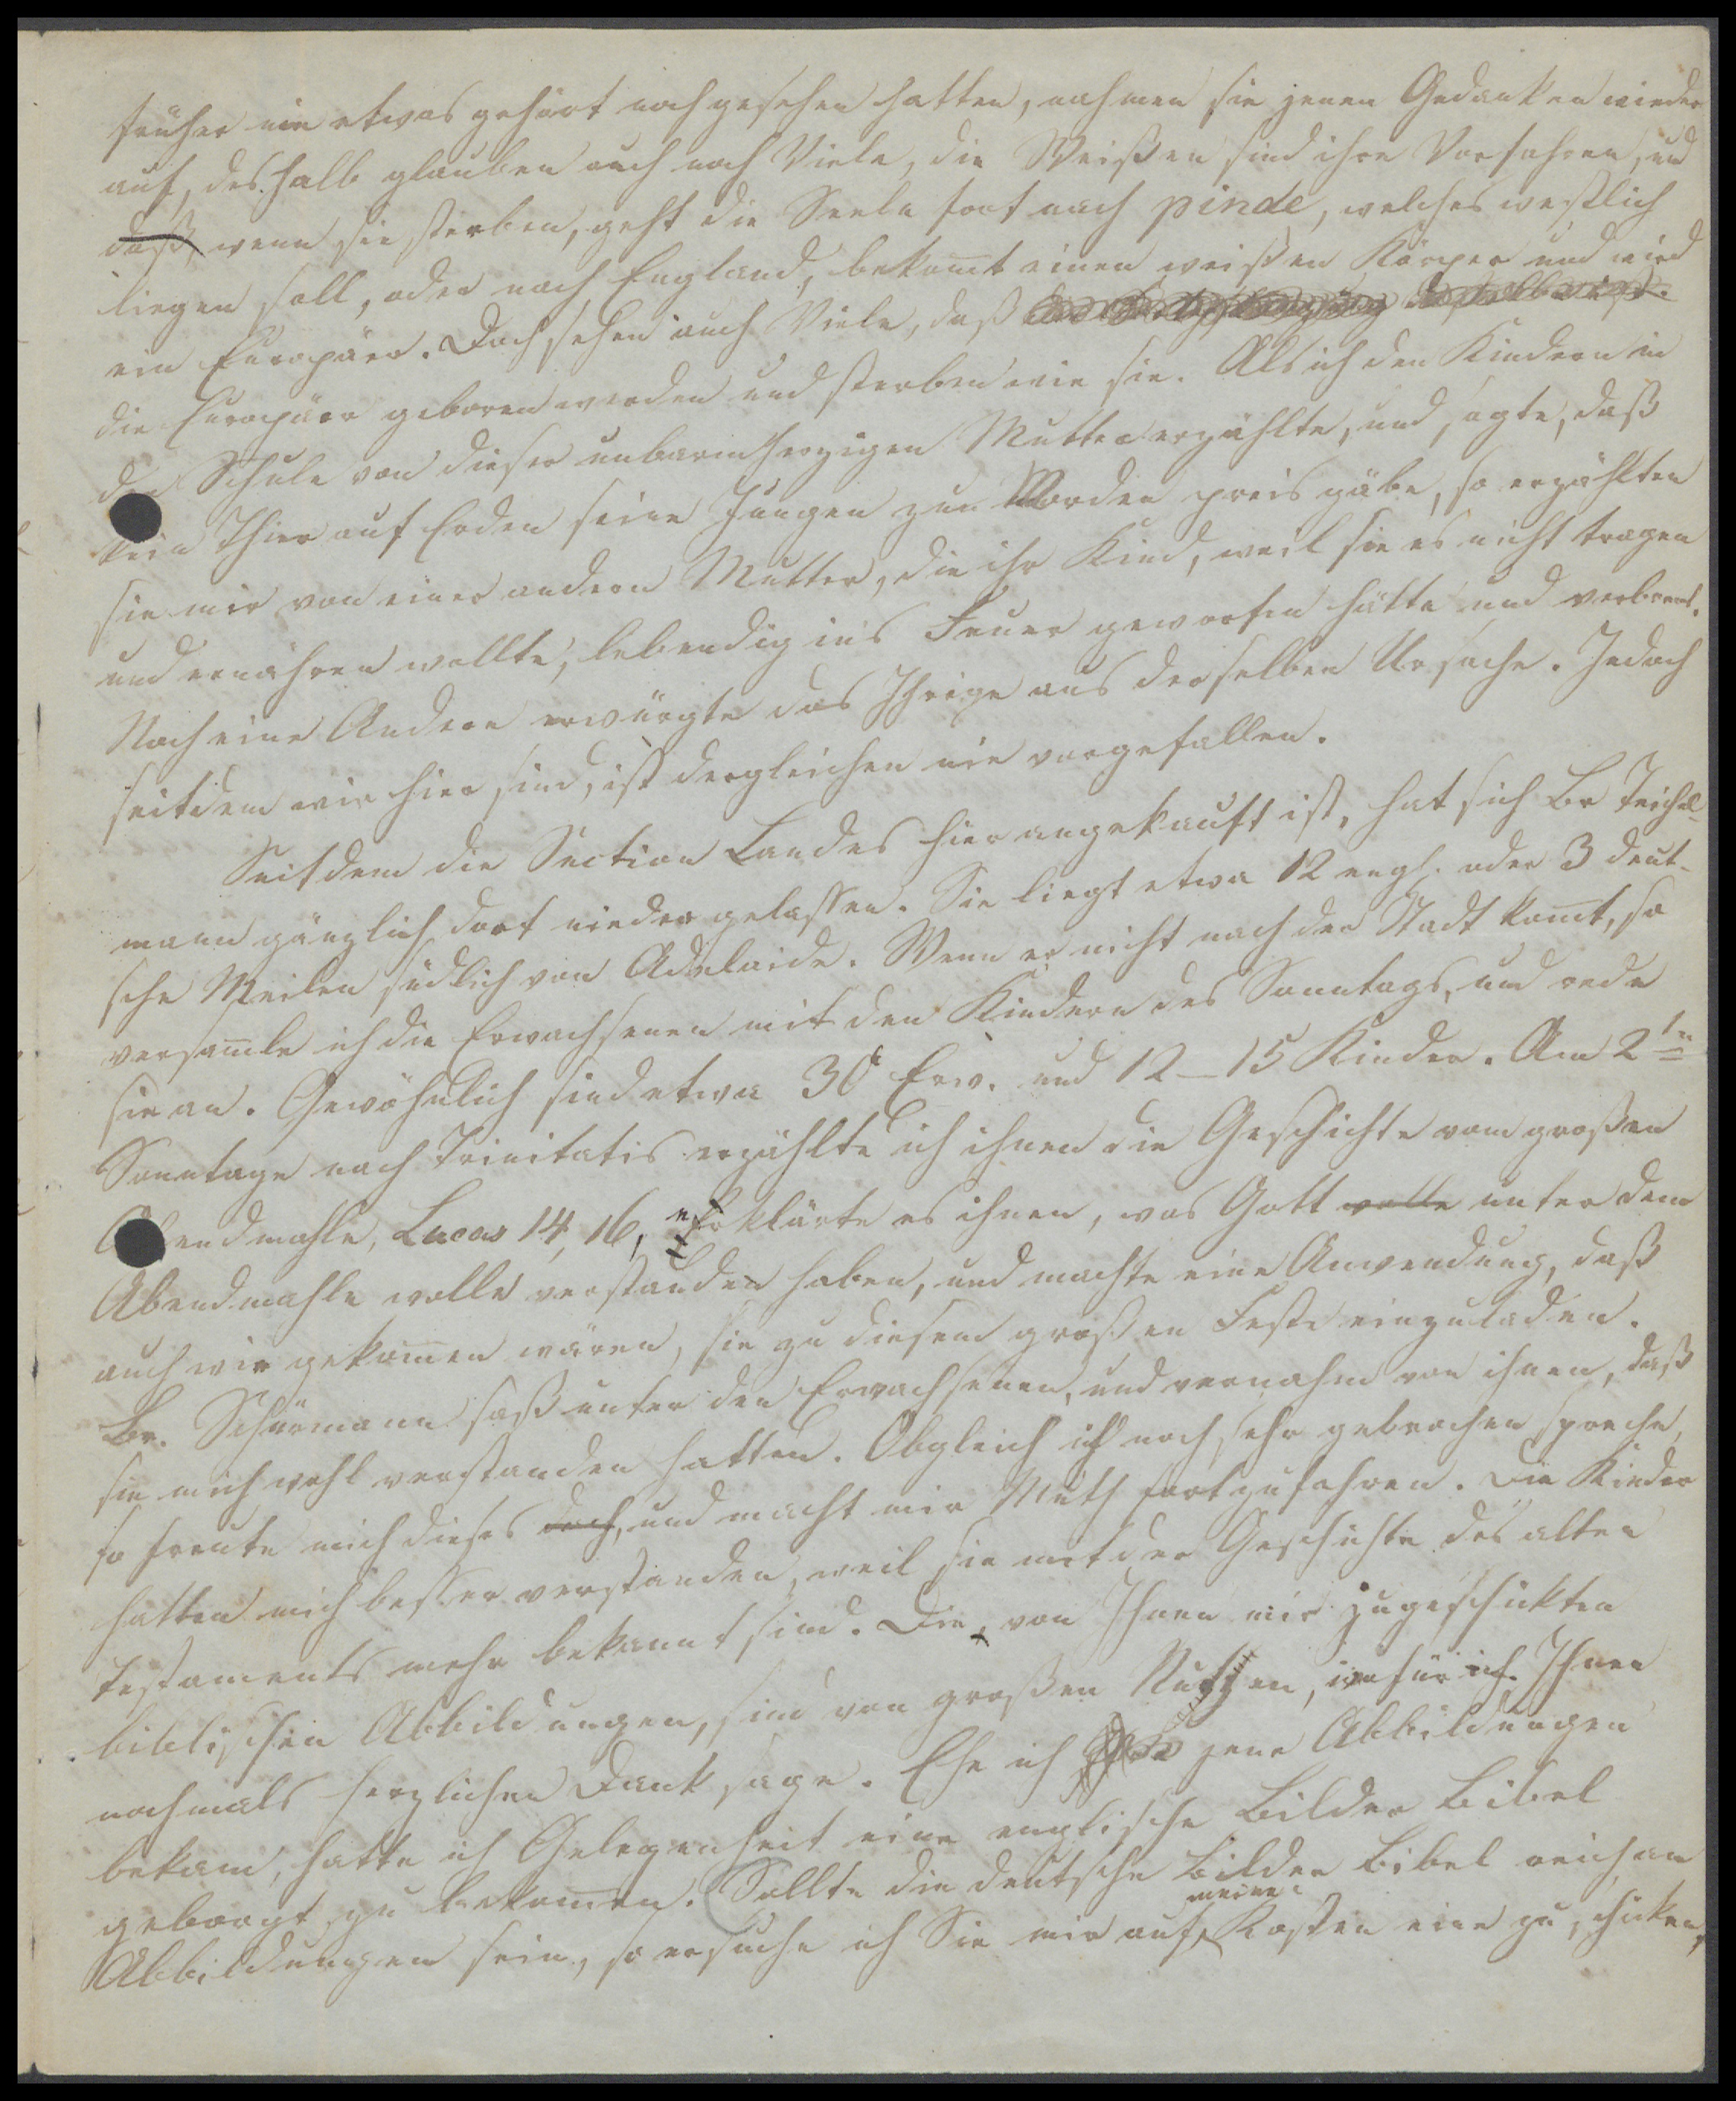 früher nie etwas gehört noch gesehen hatten, nahmen sie jenen Gedanken wieder
auf, deshalb glauben auch noch Viele, die Weißen sind ihre Vorfahren, und
daß, wenn sie sterben, geht die Seele fort nach pinde, welches westlich
liegen soll, oder nach England, bekom̄t einen weißen Körper und wird
ein Europäer. Doch sehen auch Viele, daß
die Europäer geboren werden und sterben wie sie. Als ich den Kindern in
der Schule von dieser unbarmherzigen Mutter erzählte, und sagte, daß
kein Thier auf Erden seine Jungen zum Morden preis gäbe, so erzählten
sie mir von einer andern Mutter, die ihr Kind, weil sie es nicht tragen
und ernähren wollte, lebendig in's Feuer geworfen hätte und verbrant.
Noch eine Andere erwürgte das Ihrige aus derselben Ursache. Jedoch
seitdem wir hier sind, ist dergleichen nie vorgefallen.
Seitdem die Section Landes hier angekauft ist, hat sich Br Teichel-
mann gänzlich dort niedergelassen. Sie liegt etwa 12 engl. oder 3 deut-
sche Meilen südlich von Adelaide. Wenn er nicht nach der Stadt kom̄t, so
versam̄le ich die Erwachsenen mit den Kindern des Sonntags, und rede
sie an. Gewöhnlich sind etwa 30 Erw. und 12–15 Kinder. Am 2ten
Sonntage nach Trinitatis erzählte ich ihnen die Geschichte vom großen
Abendmahle, Lucas 14, 16, erklärte es ihnen, was Gott wolle unter dem
Abendmahle wolle verstanden haben, und machte eine Anwendung, daß
auch wir gekom̄en wären, sie zu diesem großen Feste einzuladen.
Br. Schürmann saß unter den Erwachsenen, und vernahm von ihnen, daß
sie mich wohl verstanden hatten. Obgleich ich noch sehr gebrochen spreche,
so freute mich dieses doch, und macht mir Muth fortzufahren. Die Kinder
hatten mich besser verstanden, weil sie mit der Geschichte des alten
Testaments mehr bekannt sind. Die, von Ihnen mir zugeschickten
biblischen Abbildungen, sind von großen Nutzen, wofür ich Ihnen
nochmals herzlichen Dank sage. Ehe ich jene Abbildungen
bekam, hatte ich Gelegenheit eine englische Bilder Bibel
geborgt zu bekom̄en. Sollte die deutsche Bilder Bibel reich an
Abbildungen sein, so ersuche ich Sie mir auf meine Kosten eine zu schicken,